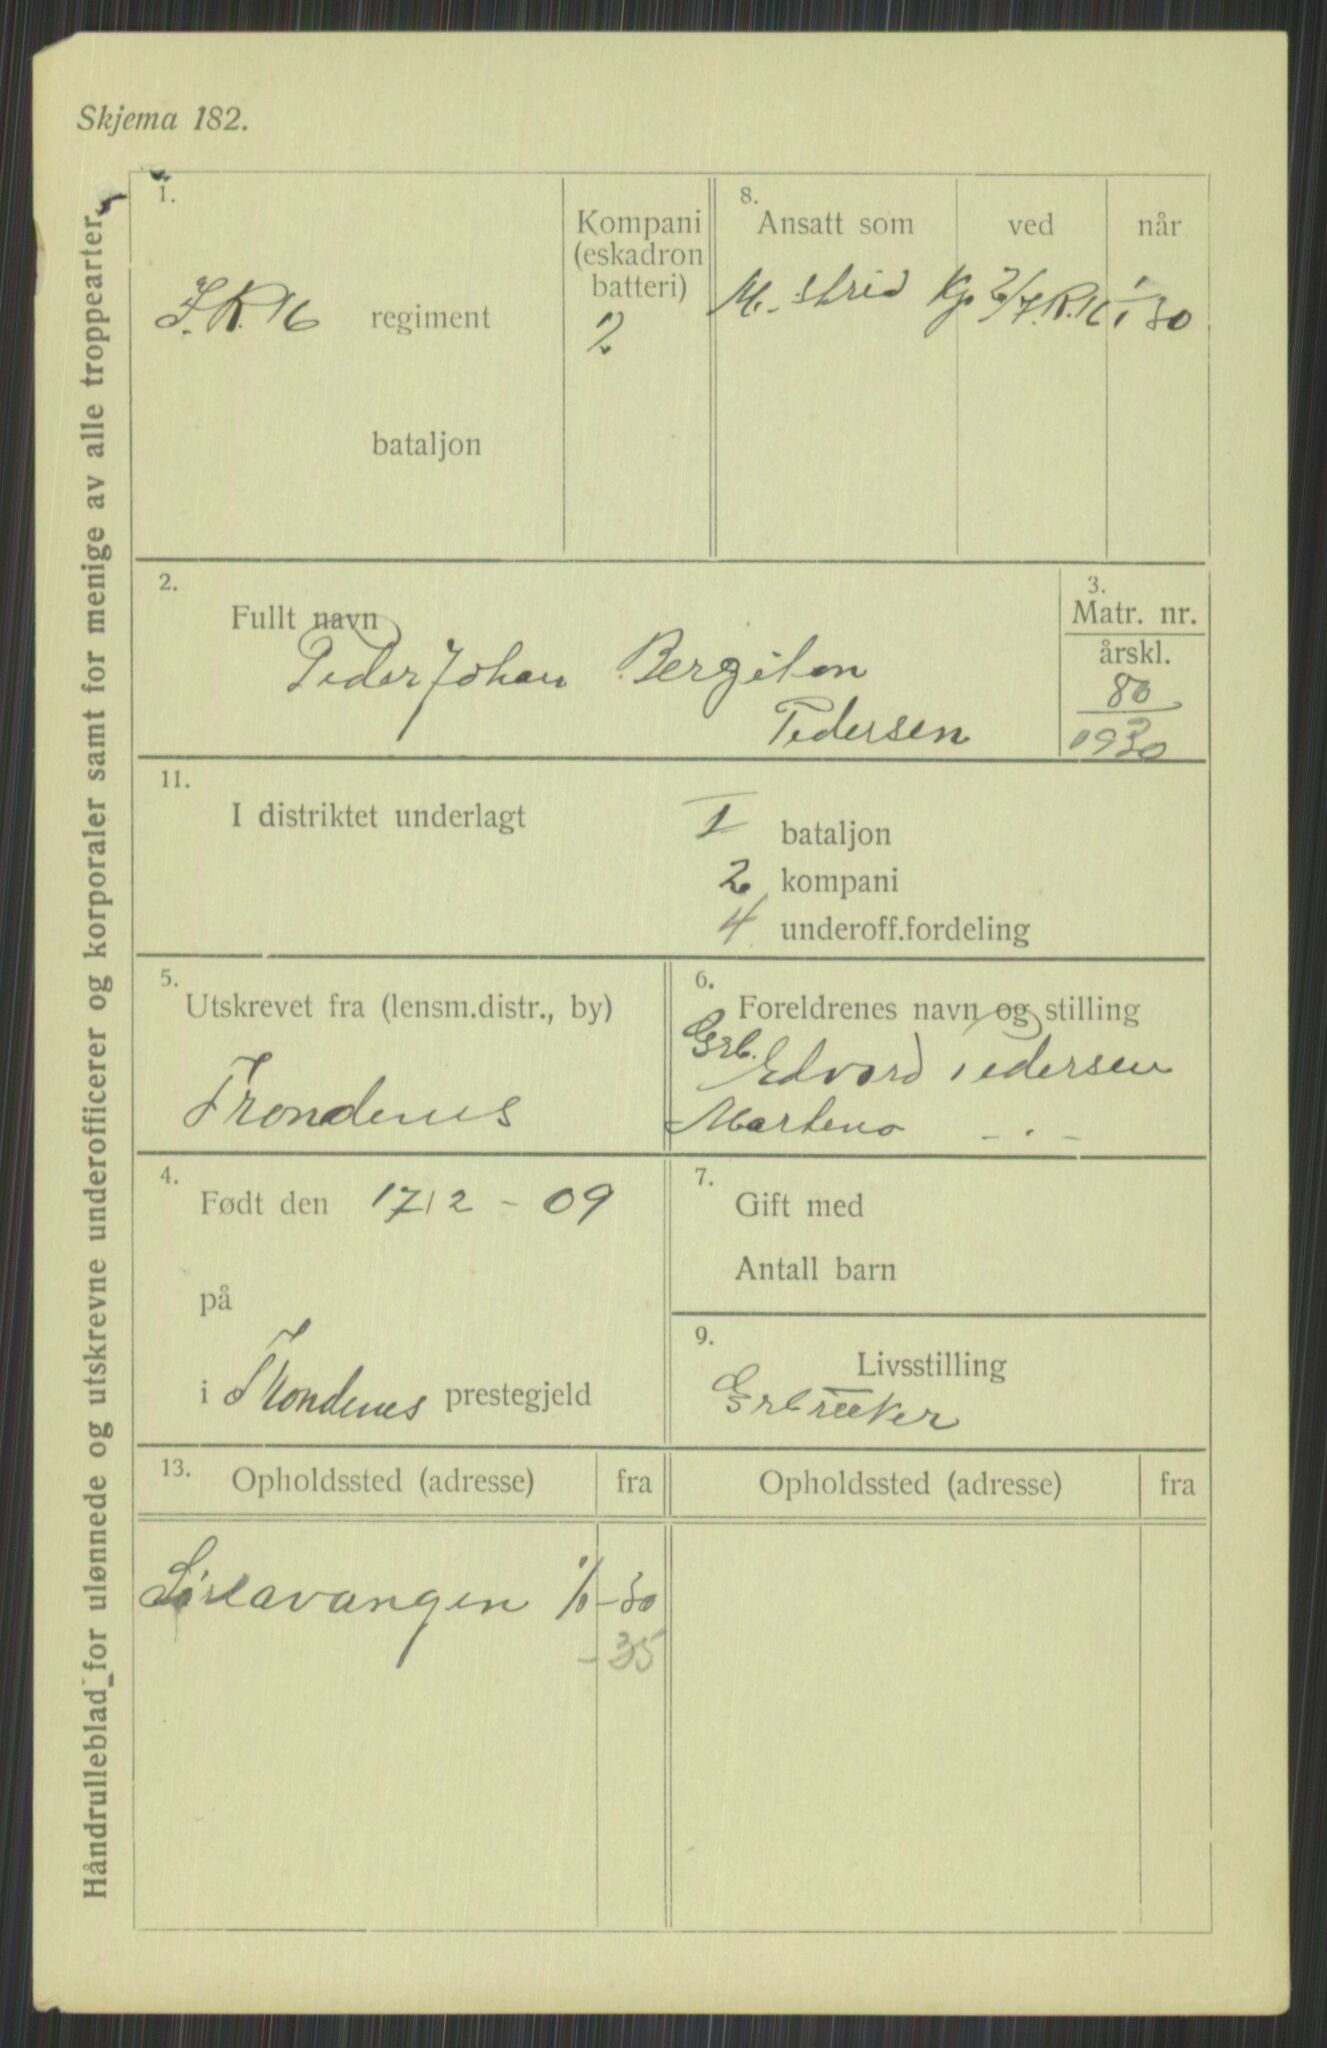 Skjema 182.
Håndrulleblad for ulønnede og utskrevne underofficerer og korporaler samt for menige av alle troppearter.
1.
I.R. 16 regiment
bataljon
Kompani
(eskadron
batteri)
2
8.
Ansatt som ved når
M. strid Kp 2/I.R.16 1/1 30
2.
Fullt navn
Peder Johan Bergiton
Pedersen
3.
Matr. nr.
årskl.
80
1930
11.
I distriktet underlagt
I bataljon
2 kompani
4 underoff.fordeling
5.
Utskrevet fra (lensm.distr., by)
Trondenes
6.
Foreldrenes navn og stilling
Grb. Edvard Pedersen
Martena - . -
4.
Født den 17/2 - 09
på
i Trondenes prestegjeld
7.
Gift med
Antall barn
9.
Livsstilling
Grbruker
13.
Opholdssted (adresse) fra
Opholdssted (adresse) fra
Sørlavangen - 30
- 35